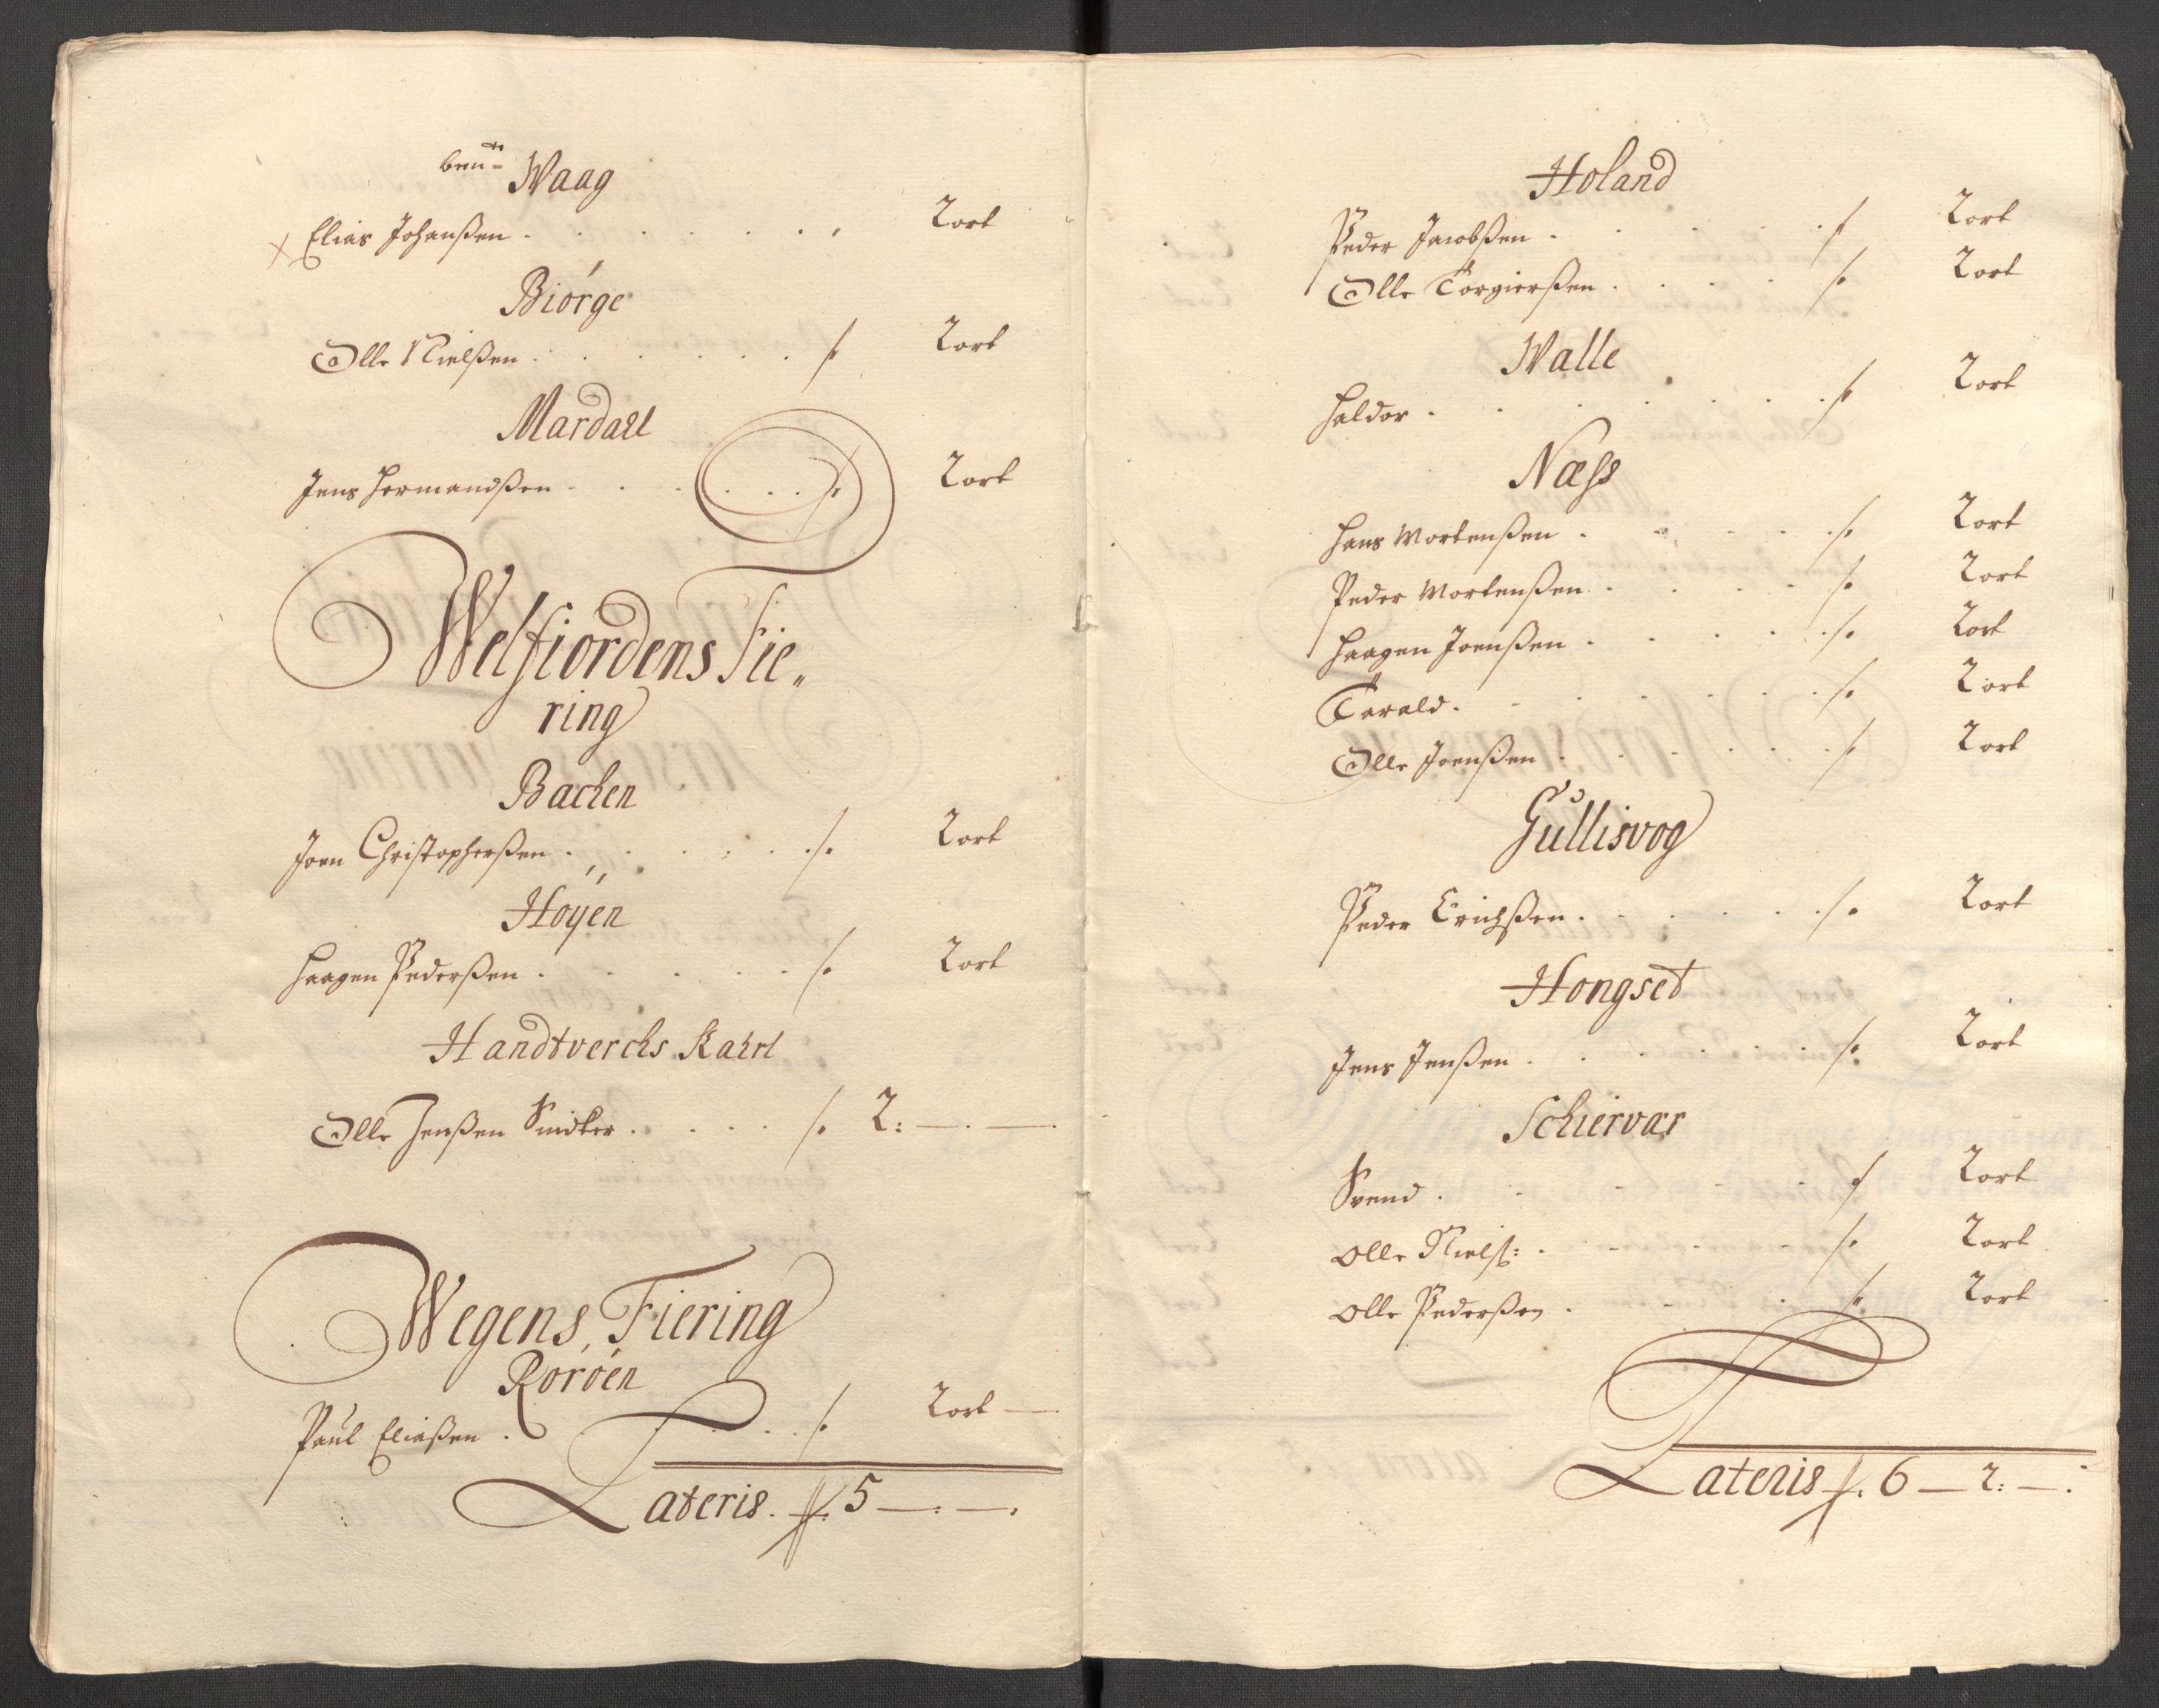 ben:te Waag
Elias Johanßen . . . . . . 2 ort
Biórge
Olle Nielßen . . . . . . 2 ort
Mardall
Jens Hermandßen . . . . . . 2 ort
Welfiordens Fie„
ring
Bachen
Joen Christopherßen . . . . . . 2 ort
Höyen
Haagen Pederßen . . . . . . 2 ort
Handtverchs Karl
Olle Jenßen Snidker . . . . 2: — . —
Wegens Fiering
Roröen
Paul Eliaßen . . . 2 ort —
Lateris . 5 — : — .
Holand
Peder Jacobßen . . . . . 2 ort
Olle Torgierßen . . . . 2 ort
Walle
Haldor . . . . . . . 2 ort
Næss
Hans Mortenßen . . . . . 2 ort
Peder Mortenßen . . . . . 2 ort
Haagen Joenßen . . . . . 2 ort
Tarald . . . . . . . 2 ort
Olle Joenßen . . . . . . 2 ort
Gullisvog
Peder Erichßen . . . . . . 2 ort
Hongset
Jens Jenßen . . . . . . 2 ort
Schiervær
Svend . . . . . . 2 ort
Olle Nielß: . . . . . 2 ort
Olle Pederßen . . . . . 2 ort
Lateris . 6 — 2: — .